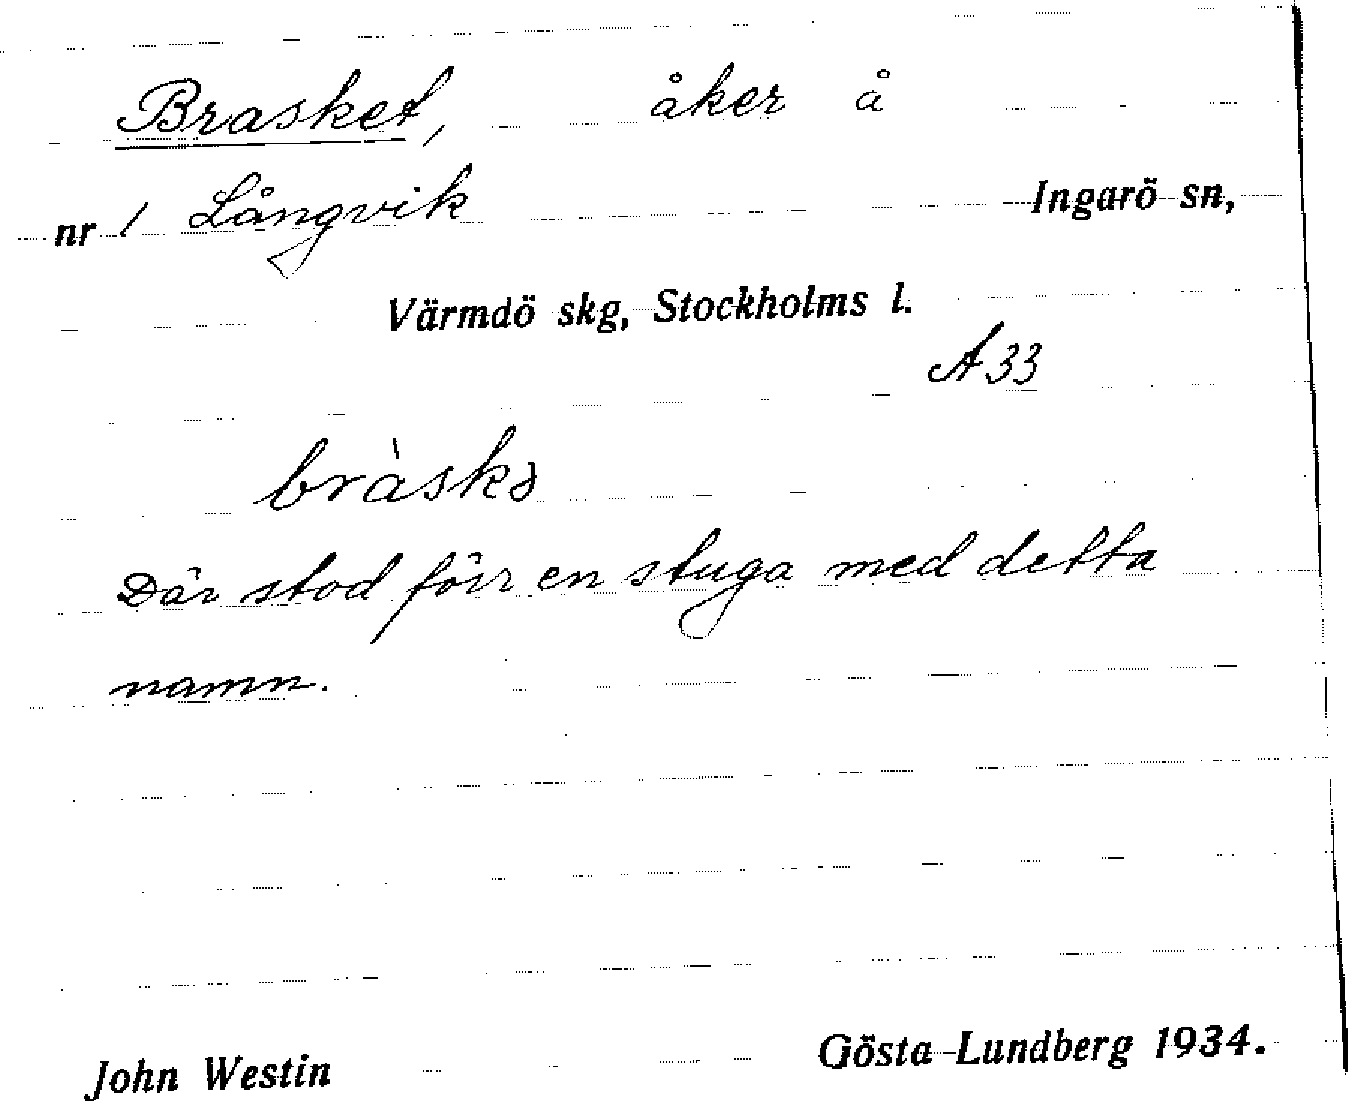 Brasket, åker å
nr 1 Långvik Ingarö sn,
Värmdö skg, Stockholms l.
A 33
bràskə
Där stod förr en stuga med detta
namn.
John Westin Gösta Lundberg 1934.